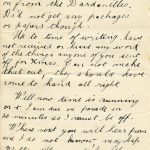 on from the Dardanelles.
Did not get any packages
or papers though.
Up to time of writing have
not received or heard any word
of the thing anyone of you sent
off for Xmas. I am not make
that out, they should have
come to hand all right
Well now time is running
on & am due on parade in
20 minutes so I must be off
Where next you will hear from
me I do not know, perhaps